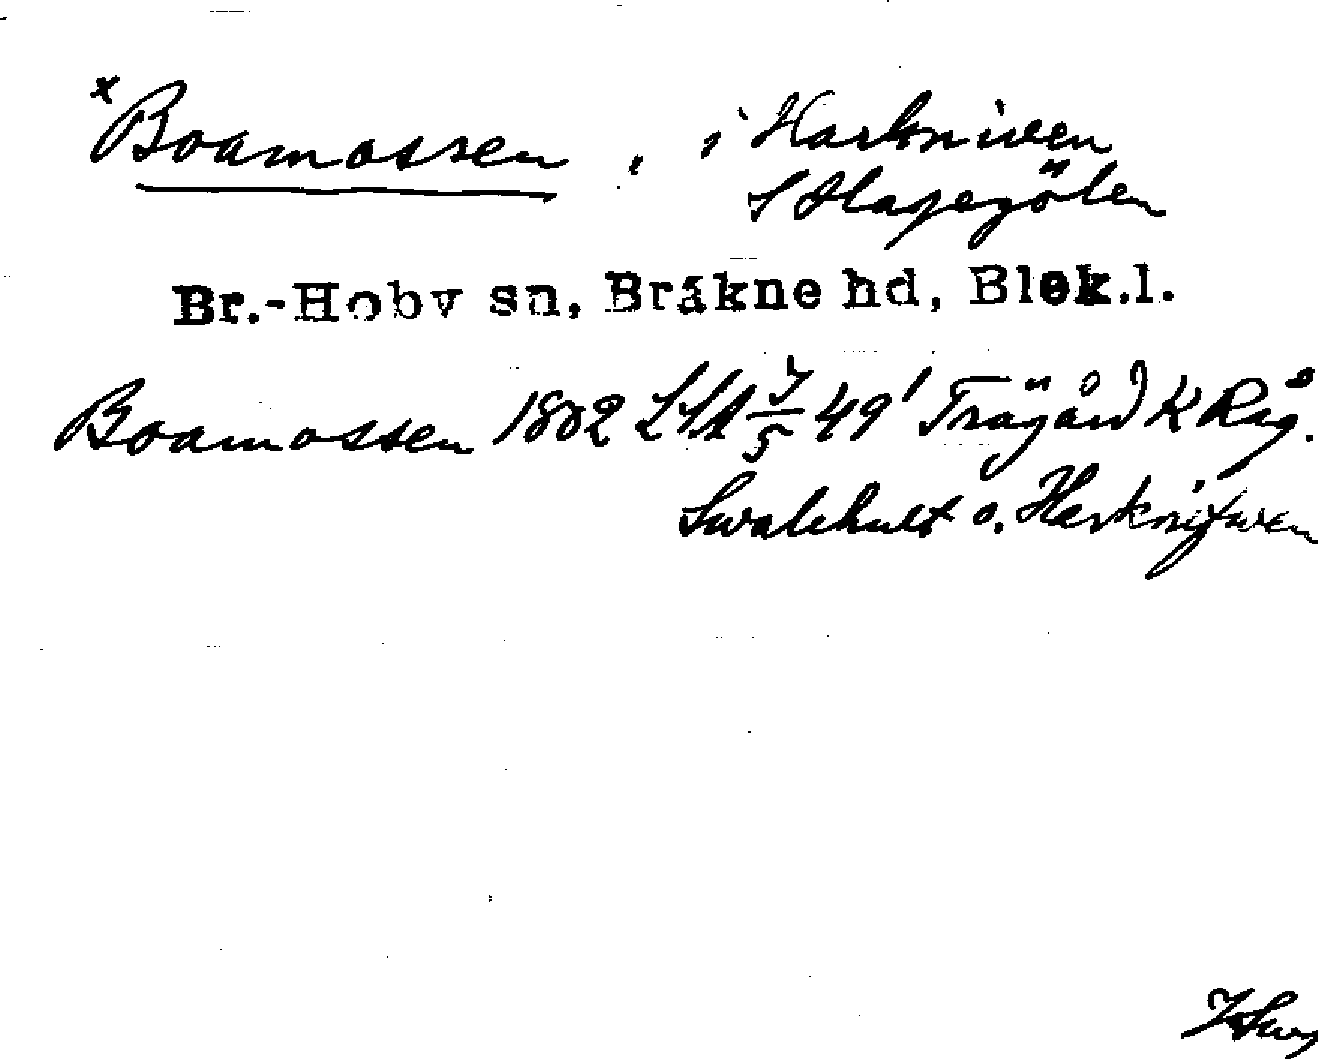 x Boamossen, i Harkniven
S Hagegölen
Br.-Hoby sn, Bräkne hd, Blek.l.
Boamossen 1802 LSA 7/5 49' Trägård K Råg.
Swalehult o. Harknifwen